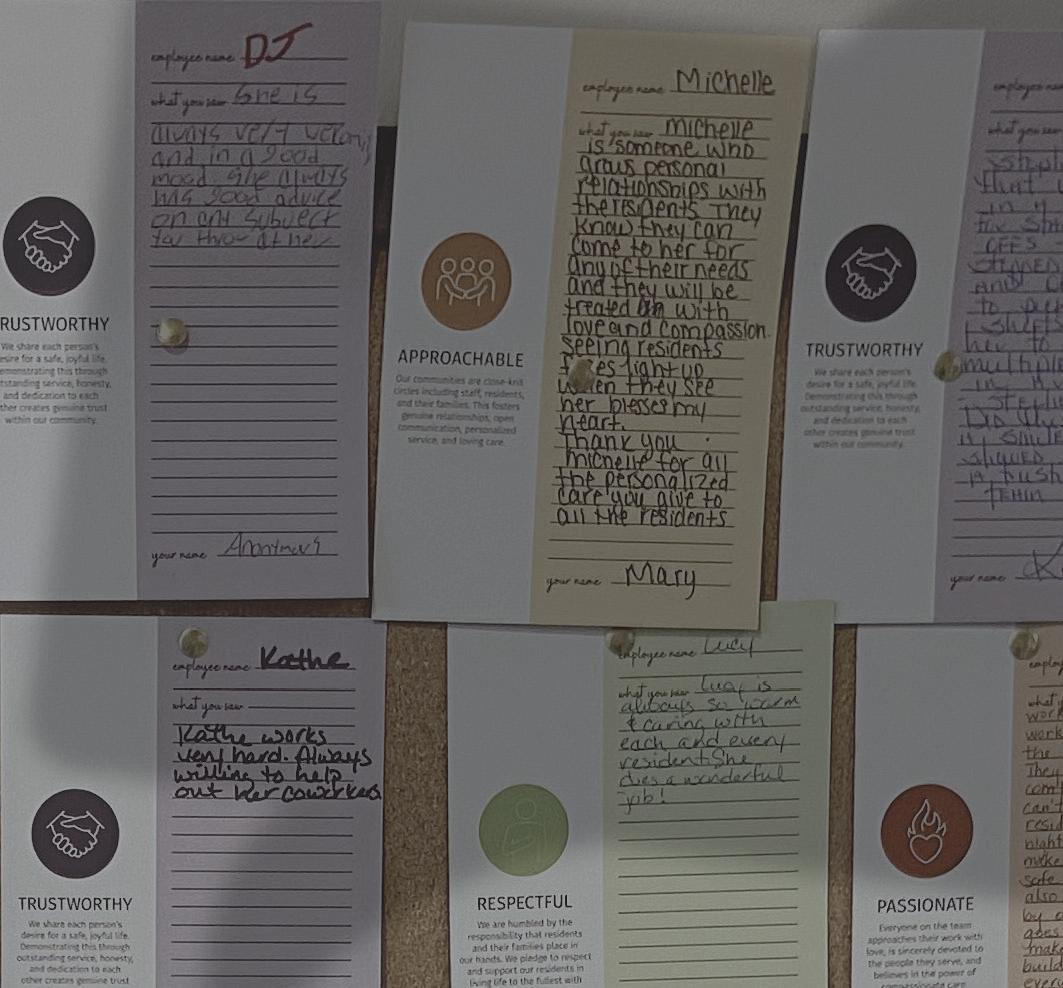 employee name DJ
what you saw She is
always very welcoming
and in a good
mood. She always
has good advice
on any subject
you throw at her
your name Anonymous
RUSTWORTHY
We share each person's
desire for a safe, joyful life.
emonstrating this through
tstanding service, honesty,
and dedication to each
ther creates genuine trust
within our community.
employee name Michelle
what you saw Michelle
is someone who
grows personal
relationships with
the residents They
know they can
come to her for
any of their needs
and they will be
treated with
love and compassion.
seeing residents
faces light up
when they see
her blesses my
heart.
Thank you
michelle for all
the personalized
care you give to
all the residents
your name Mary
APPROACHABLE
Our communities are close-knit
circles including staff, residents,
and their families. This fosters
genuine relationships, open
communication, personalized
service, and loving care.
TRUSTWORTHY
We share each person's
desire for a safe, joyful life.
Demonstrating this through
outstanding service, honesty,
and dedication to each
other creates genuine trust
within our community.
employee name
what you saw
that
in
OFF
STAYED
AND
to
her to
multiple
in
DID
A SMILE
A PUSH
your name K
employee name Kathe
what you saw
Kathe works
very hard. Always
willing to help
out her coworkers
TRUSTWORTHY
We share each person's
desire for a safe, joyful life.
Demonstrating this through
outstanding service, honesty,
and dedication to each
other creates genuine trust
employee name Lucy
what you saw Lucy is
always so warm
& caring with
each and every
resident. She
does a wonderful
job!
RESPECTFUL
We are humbled by the
responsibility that residents
and their families place in
our hands. We pledge to respect
and support our residents in
living life to the fullest with
employ
what
work
work
the
They
com
can't
resid
night
make
safe
also
by
goes
make
build
ever
PASSIONATE
Everyone on the team
approaches their work with
love, is sincerely devoted to
the people they serve, and
believes in the power of
compassionate care.